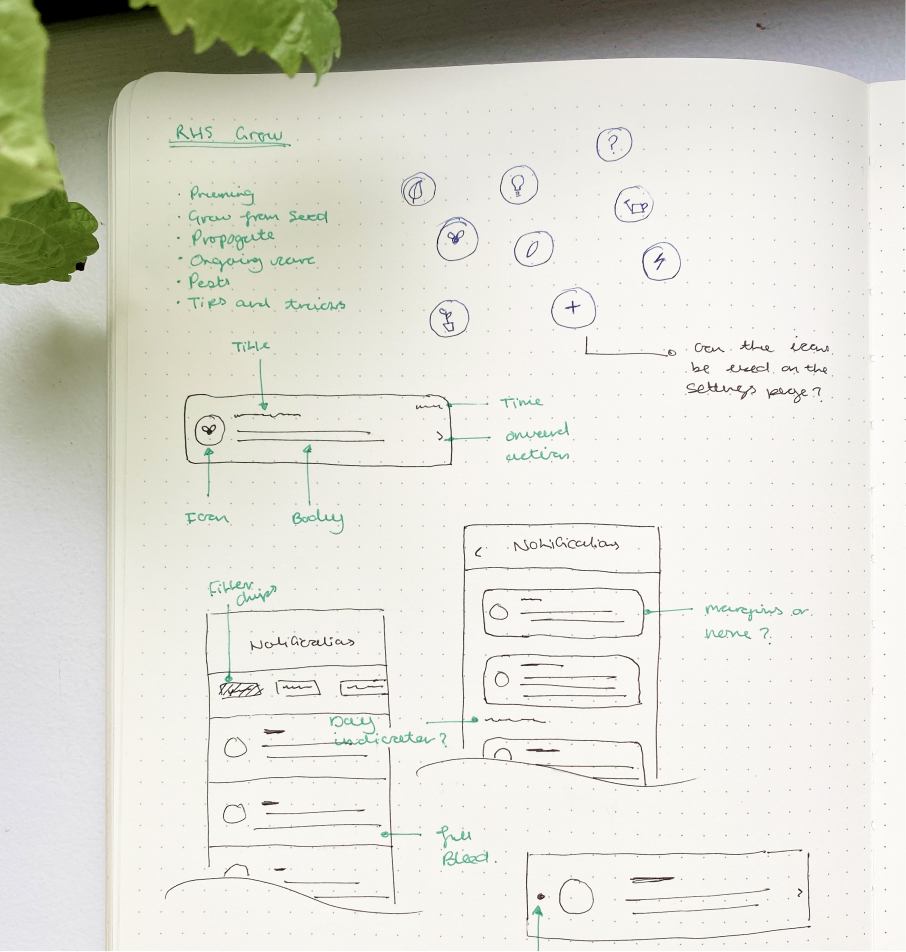 RHS Grow
· Pruning
· Grow from Seed
· Propogate
· Ongoing care
· Pests
· Tips and tricks
?
+
can the icons
be used on the
settings page?
Title
Time
onward
action
Icon
Body
Notifications
margins or
none?
Filter
chips
Notifications
Day
indicator?
full
Bleed.